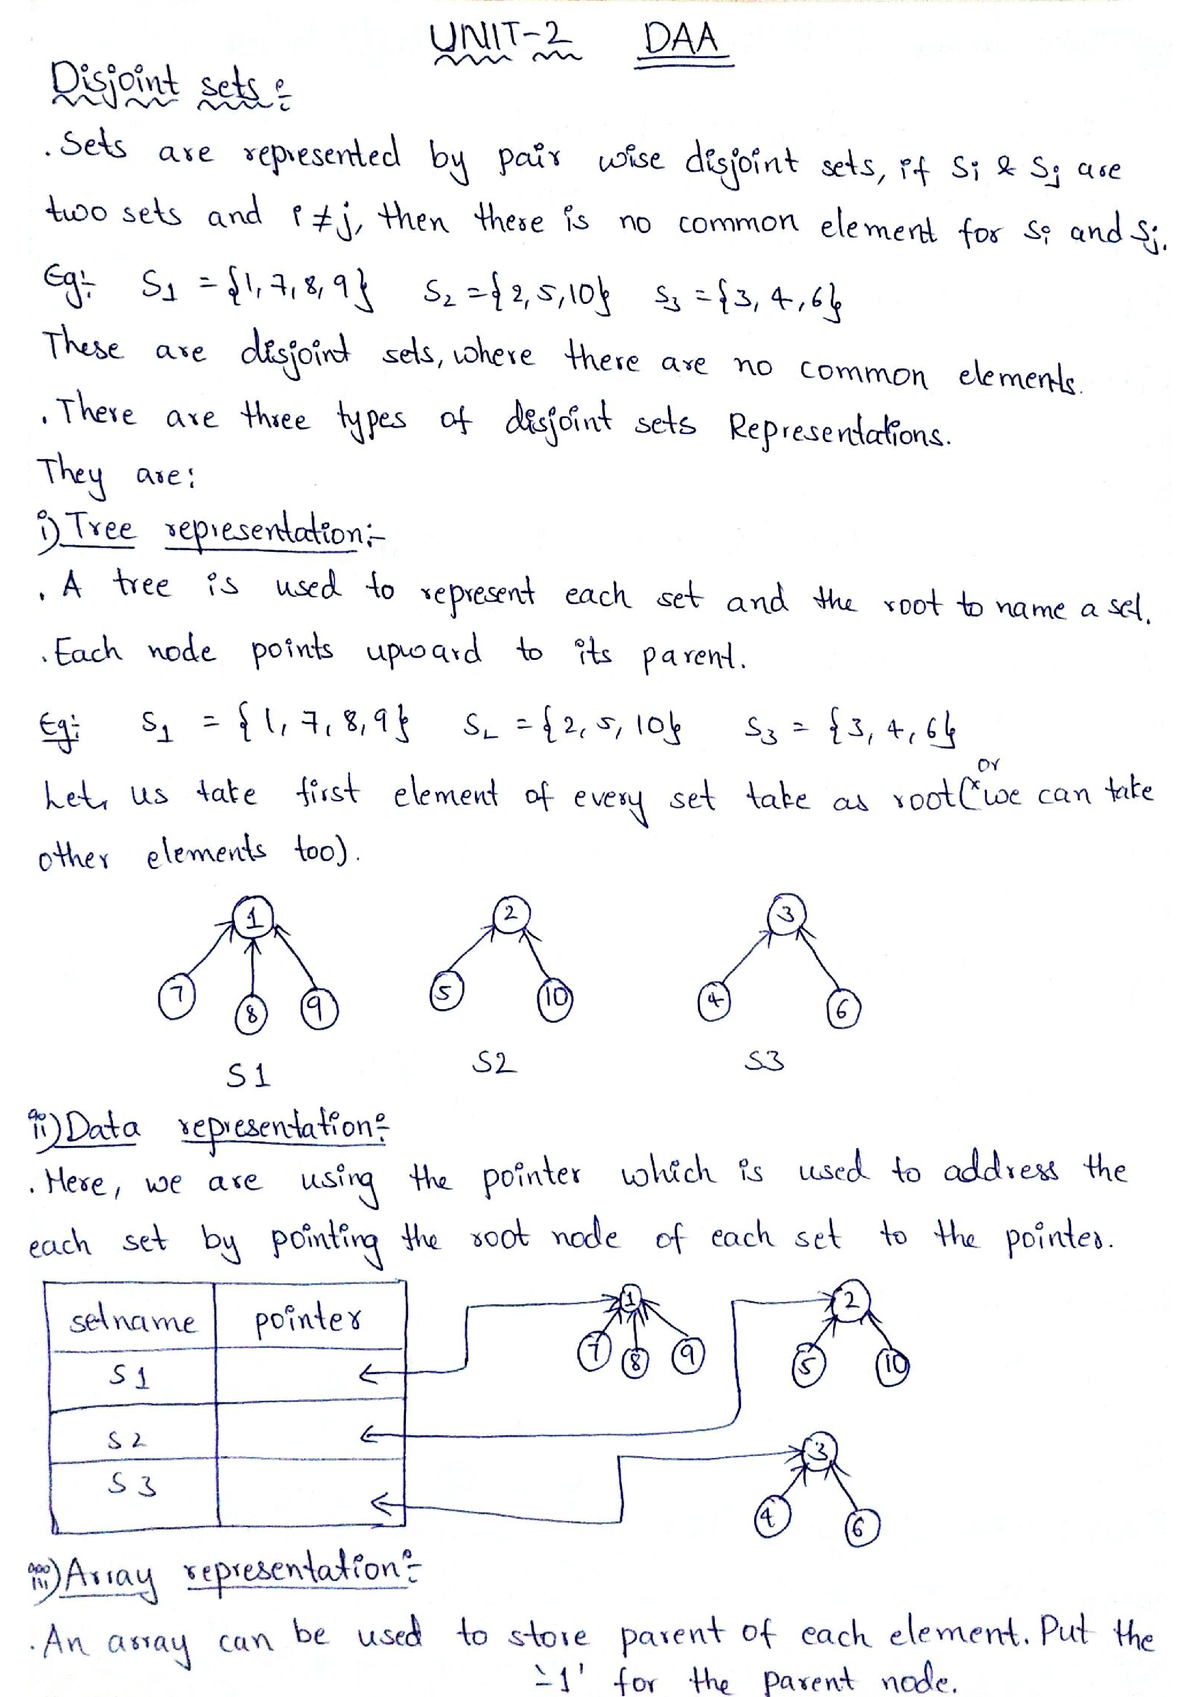 UNIT-2 DAA
Disjoint sets:-
. Sets are represented by pair wise disjoint sets, if Si & Sj are
two sets and i≠j, then there is no common element for Si and Sj.
Eg:- S1 = {1, 7, 8, 9} S2 = {2, 5, 10} S3 = {3, 4, 6}
These are disjoint sets, where there are no common elements.
. There are three types of disjoint sets Representations.
They are:
i) Tree representation:-
. A tree is used to represent each set and the root to name a set.
. Each node points upward to its parent.
Eg:- S1 = {1, 7, 8, 9} S2 = {2, 5, 10} S3 = {3, 4, 6}
Let, us take first element of every set take as root (or we can take
other elements too).
1 2 3
7 8 9 5 10 4 6
S1 S2 S3
ii) Data representation:-
. Here, we are using the pointer which is used to address the
each set by pointing the root node of each set to the pointer.
setname pointer 1 2
S1 7 8 9 5 10
S2 3
S3 4 6
iii) Array representation:-
. An array can be used to store parent of each element. Put the
'-1' for the parent node.